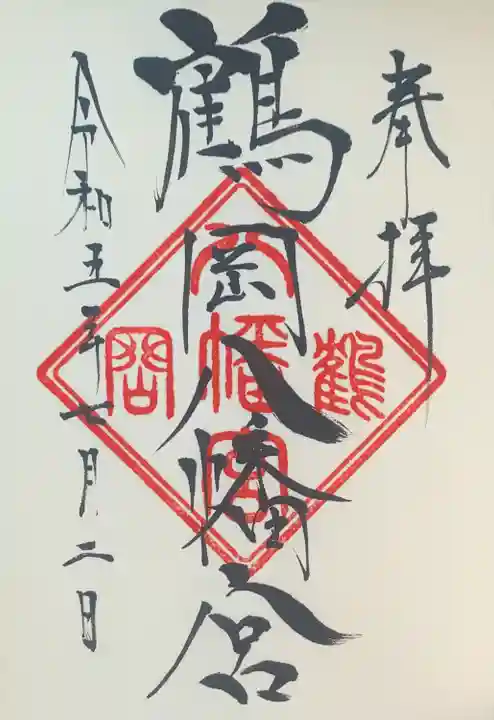 奉拝
鶴岡八幡宮
鶴
八幡宮
岡
令和五年七月二日